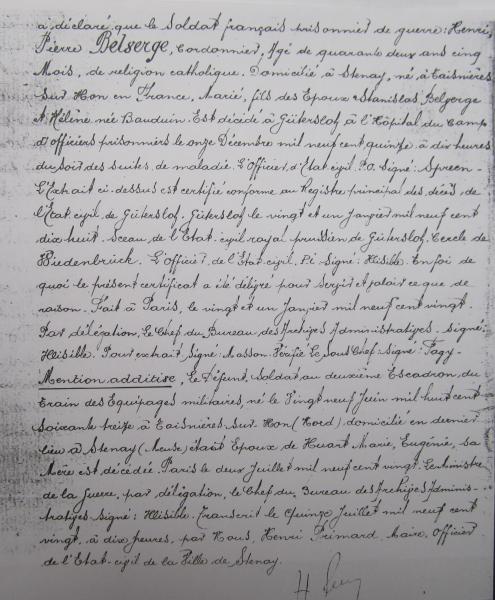 a déclaré que le Soldat français prisonnier de guerre: Henri,
Pierre Belserge, Cordonnier, Agé de quarante deux ans cinq
Mois, de religion catholique. Domicilié à Stenay, né à Taisnières
sur Hon en France, Marié, fils des Epoux Stanislas Belgerge
& Hélène née Bauduin. Est décédé à Güterslof à l'Hôpital du Camp
d'officiers prisonniers le onze Décembre mil neuf cent quinze à dix heures
du soir des suites de maladie. L'Officier d'Etat civil. P.O. Signé: Spreen-
L'Extrait ci-dessus est certifié conforme au Registre principal des décès de
l'Etat civil de Güterslof. Güterslof le vingt et un Janvier mil neuf cent
dix huit. Sceau de l'Etat-civil royal prussien de Güterslof. Cercle de
Wiedenbrück. L'Officier de l'Etat civil. Pi Signé: Illisible. En foi de
quoi le présent certificat a été délivré pour servir et valoir ce que de
raison. Fait à Paris, le vingt et un Janvier mil neuf cent vingt.
Par délégation, Le Chef du Bureau des Archives Administratives. Signé:
Illisible. Pour extrait Signé: Masson. Vérifié Le Sous Chef: Signé: Fagy-
Mention additive, Le Défunt, Soldat au deuxième Escadron du
Train des Equipages militaires, né le Vingt neuf Juin mil huit cent
soixante treize à Taisnières sur Hon (Nord) domicilié en dernier
lieu à Stenay (Meuse) était Epoux de Huart Marie, Eugénie, sa
Mère est décédée. Paris le deux Juillet mil neuf cent vingt. Le Ministre
de la Guerre, par délégation, le Chef du Bureau des Archives Adminis-
tratives Signé: Illisible. Transcrit le Quinze Juillet mil neuf cent
vingt, à dix heures, par Nous, Henri Primard, Maire, Officier
de l'Etat-civil de la Ville de Stenay.